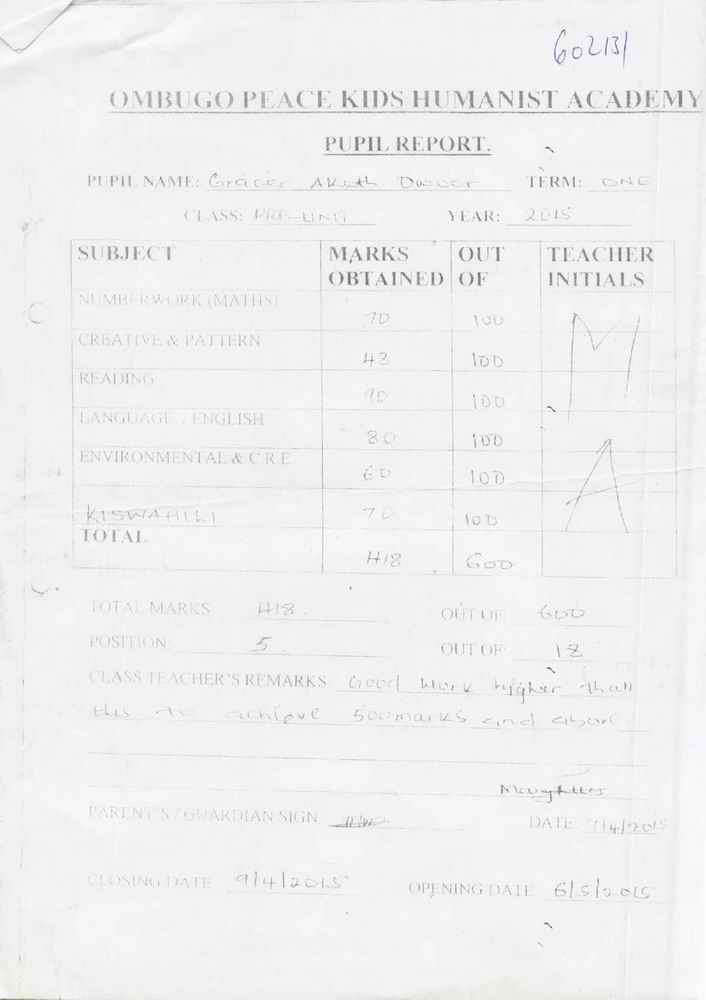 60213/
OMBUGO PEACE KIDS HUMANIST ACADEMY
PUPIL REPORT.
PUPIL NAME: Akuth TERM: ONE
CLASS: PRE-UNIT YEAR: 2015
SUBJECT MARKS OBTAINED OUT OF TEACHER INITIALS
NUMBERWORK (MATHS) 70 100 M
CREATIVE & PATTERN 100
READING 100
LANGUAGE / ENGLISH 80 100
ENVIRONMENTAL & C R E 60 100 A
KISWAHILI 70 100
TOTAL 418 600
TOTAL MARKS 418. OUT OF 600
POSITION: 5 OUT OF 18
CLASS TEACHER'S REMARKS Good work higher than
this to achieve 500marks and above
PARENT'S / GUARDIAN SIGN DATE /4/2015
CLOSING DATE 9/4/2015 OPENING DATE 6/5/2015